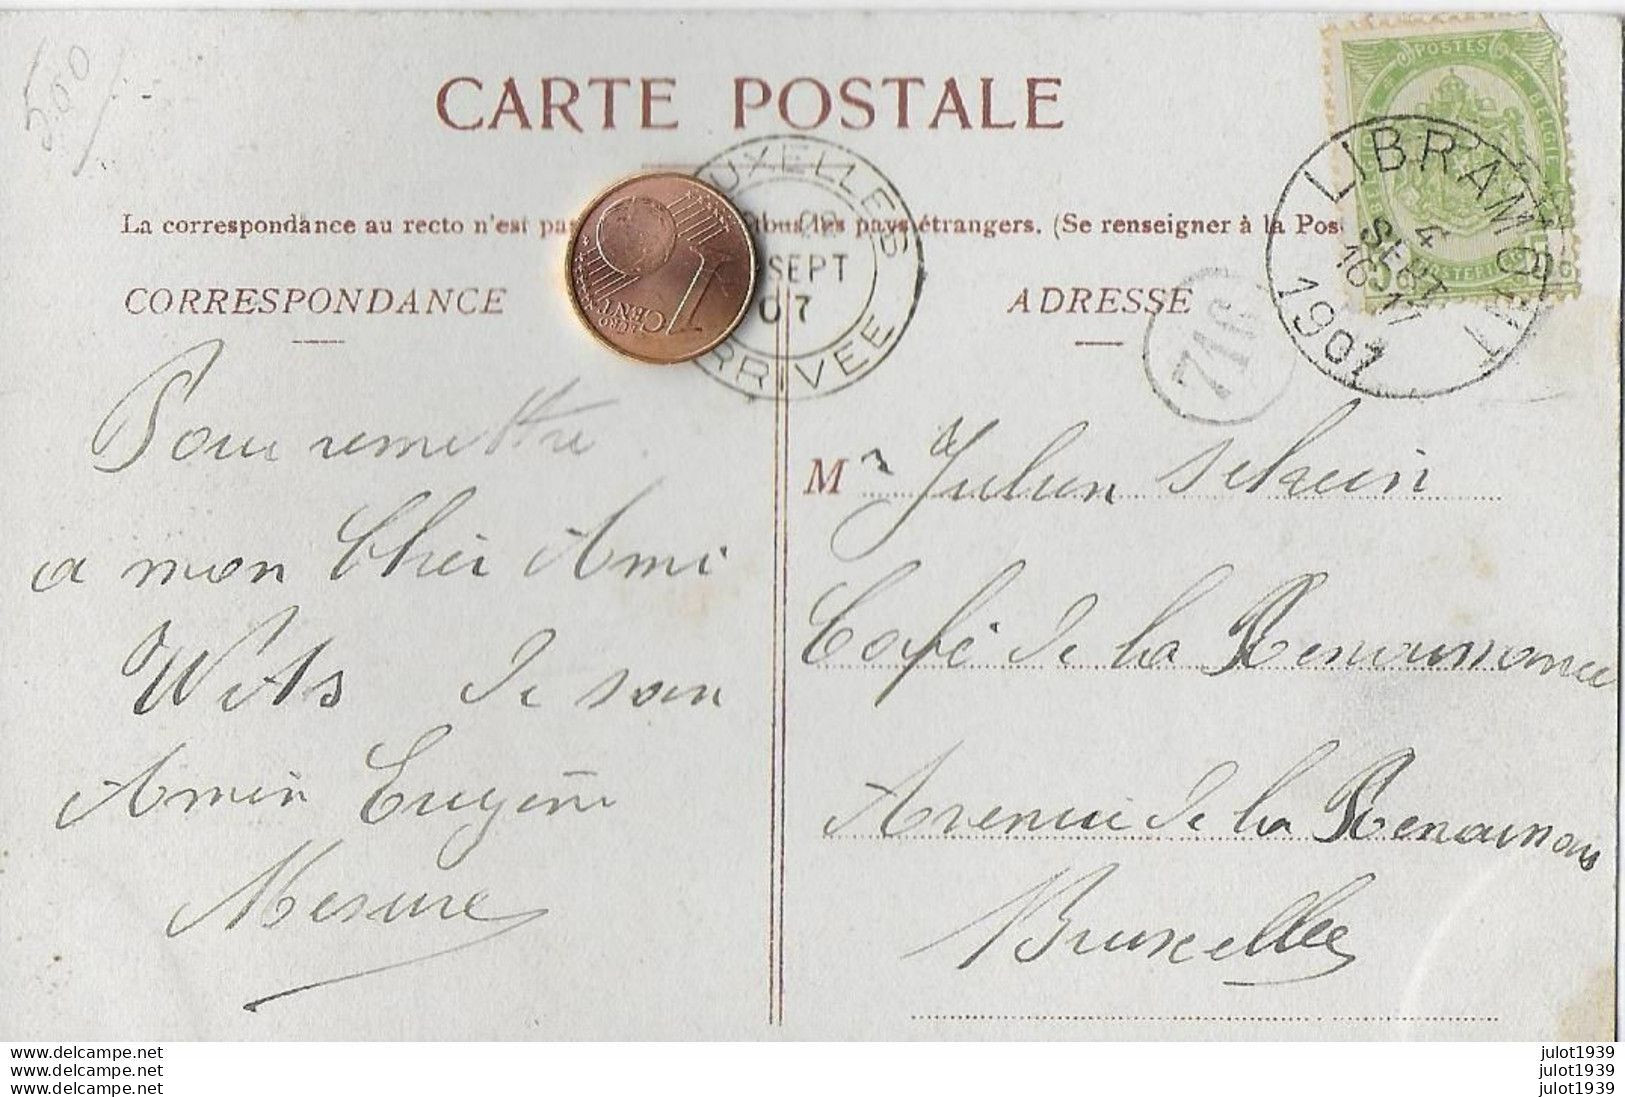 500/-
CARTE POSTALE
POSTES
BELGIQUE BELGIE
La correspondance au recto n'est pas
tous les pays étrangers. (Se renseigner à la Pos
CORRESPONDANCE
ADRESSE
UXELLES
SEPT
07
RRIVEE
1 EURO CENT
716
LIBRAMONT
4
SEPT
16-17
1907
Pour remettre
a mon Cher Ami
Wets de son
Amie Eugénie
Mesure
Mr Julien
Café de la Renaissance
Avenue de la Renaissance
Bruxelles
www.delcampe.net
www.delcampe.net
www.delcampe.net
julot1939
julot1939
julot1939